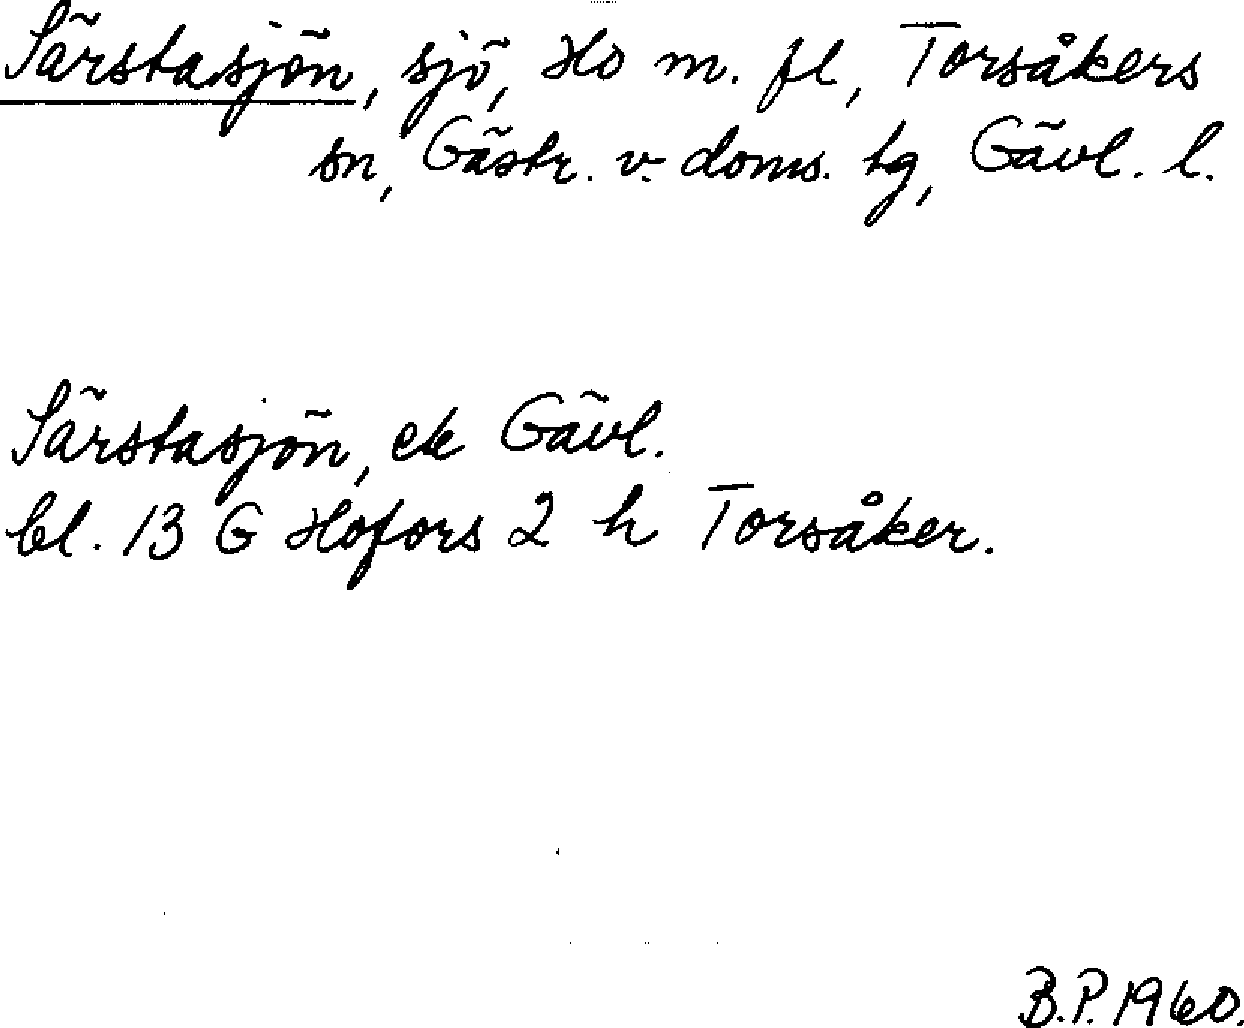 Särstasjön, sjö, Ho m. fl, Torsåkers
sn, Gästr. v. doms. tg, Gävl. l.
Särstasjön, ek Gävl.
bl. 13 G Hofors 2 h Torsåker.
B.P. 1960.